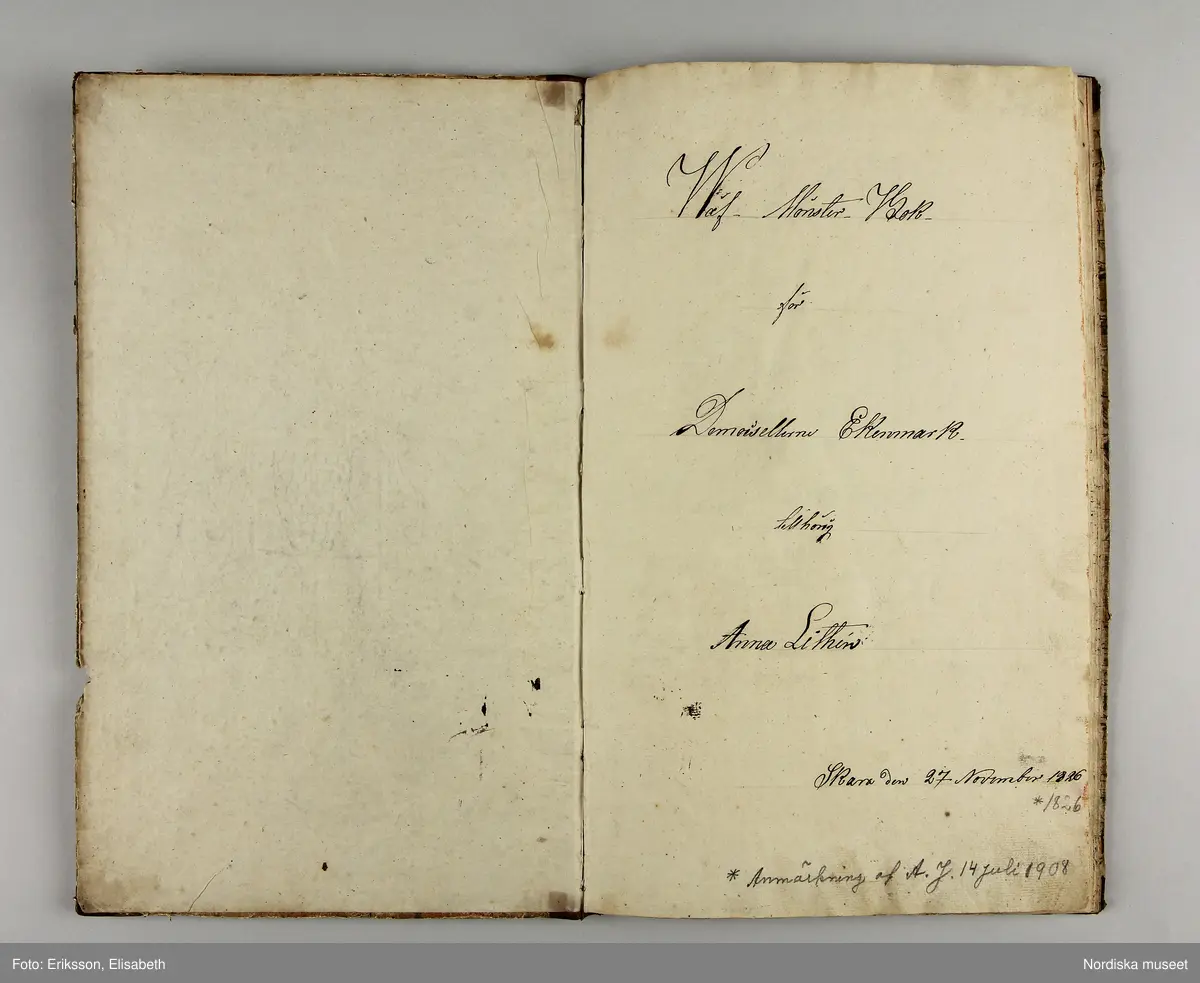 Wäf- Mönster- Bok-
för
Demoisellerne Ekenmark-
tillhörig
Anna Lithén
Skara den 27 November 1826
*1826
* Anmärkning af A. J. 14 juli 1908
Foto: Eriksson, Elisabeth
Nordiska museet